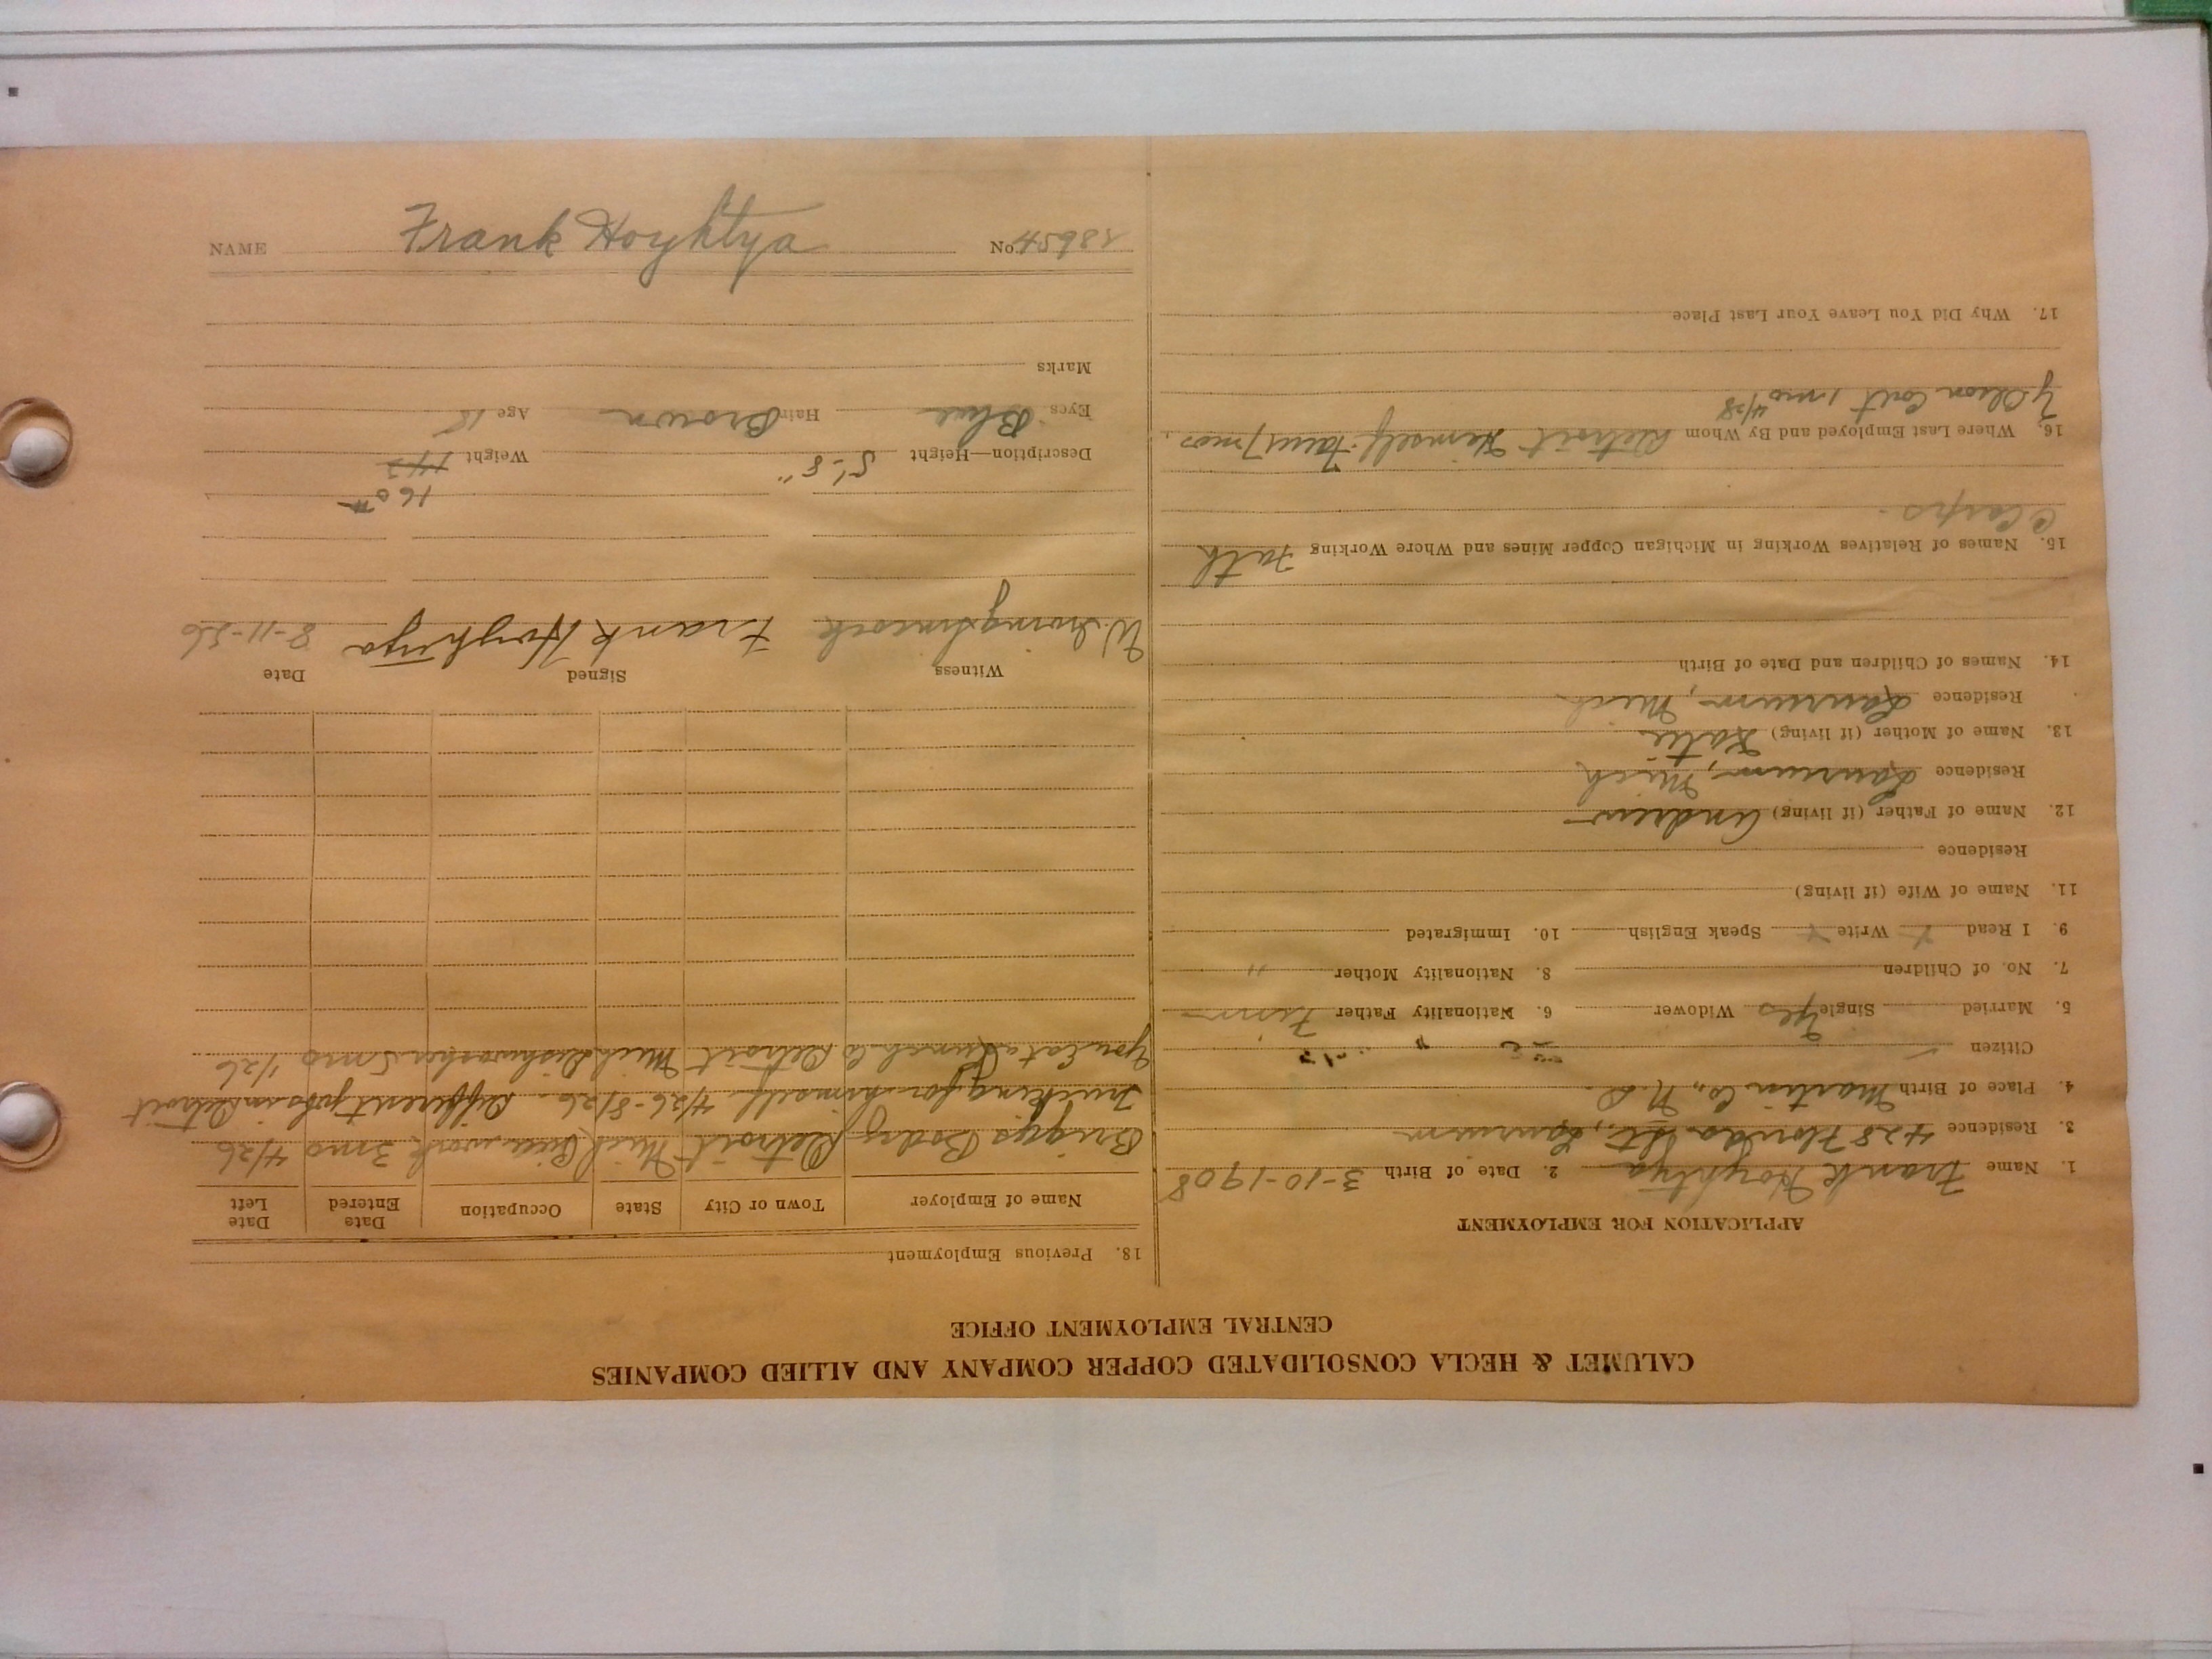 CALUMET & HECLA CONSOLIDATED COPPER COMPANY AND ALLIED COMPANIES
CENTRAL EMPLOYMENT OFFICE
APPLICATION FOR EMPLOYMENT
1. Name Frank Hoyhtya 2. Date of Birth 3-10-1908
3. Residence 428 Florida St., Laurium
4. Place of Birth Martin Co., N.D
Citizen
5. Married Single Yes Widower 6. Nationality Father Finn
7. No. of Children 8. Nationality Mother "
9. I Read Write Speak English 10. Immigrated
11. Name of Wife (if living)
Residence
12. Name of Father (if living) Andrew
Residence Laurium, Mich
13. Name of Mother (if living) Katie
Residence Laurium, Mich
14. Names of Children and Date of Birth
15. Names of Relatives Working in Michigan Copper Mines and Where Working Fath
C Carps.
16. Where Last Employed and By Whom Detroit Himself 7mos
Olson Cont 1 mo 4/28
17. Why Did You Leave Your Last Place
18. Previous Employment
Name of Employer Town or City State Occupation Date Entered Date Left
Briggs Body Detroit Mich Piece work 3mo 4/26
Trucking for himself. 4/26-8/26. Different jobs in Detroit
You Eat a Lunch Co Detroit Mich Dishwasher 5mo 1/26
Witness Signed Date
Frank Hoyhtya 8-11-26
160#
Description—Height 5'-8" Weight 142
Eyes Blue Hair Brown Age 18
Marks
NAME Frank Hoyhtya No. 18654